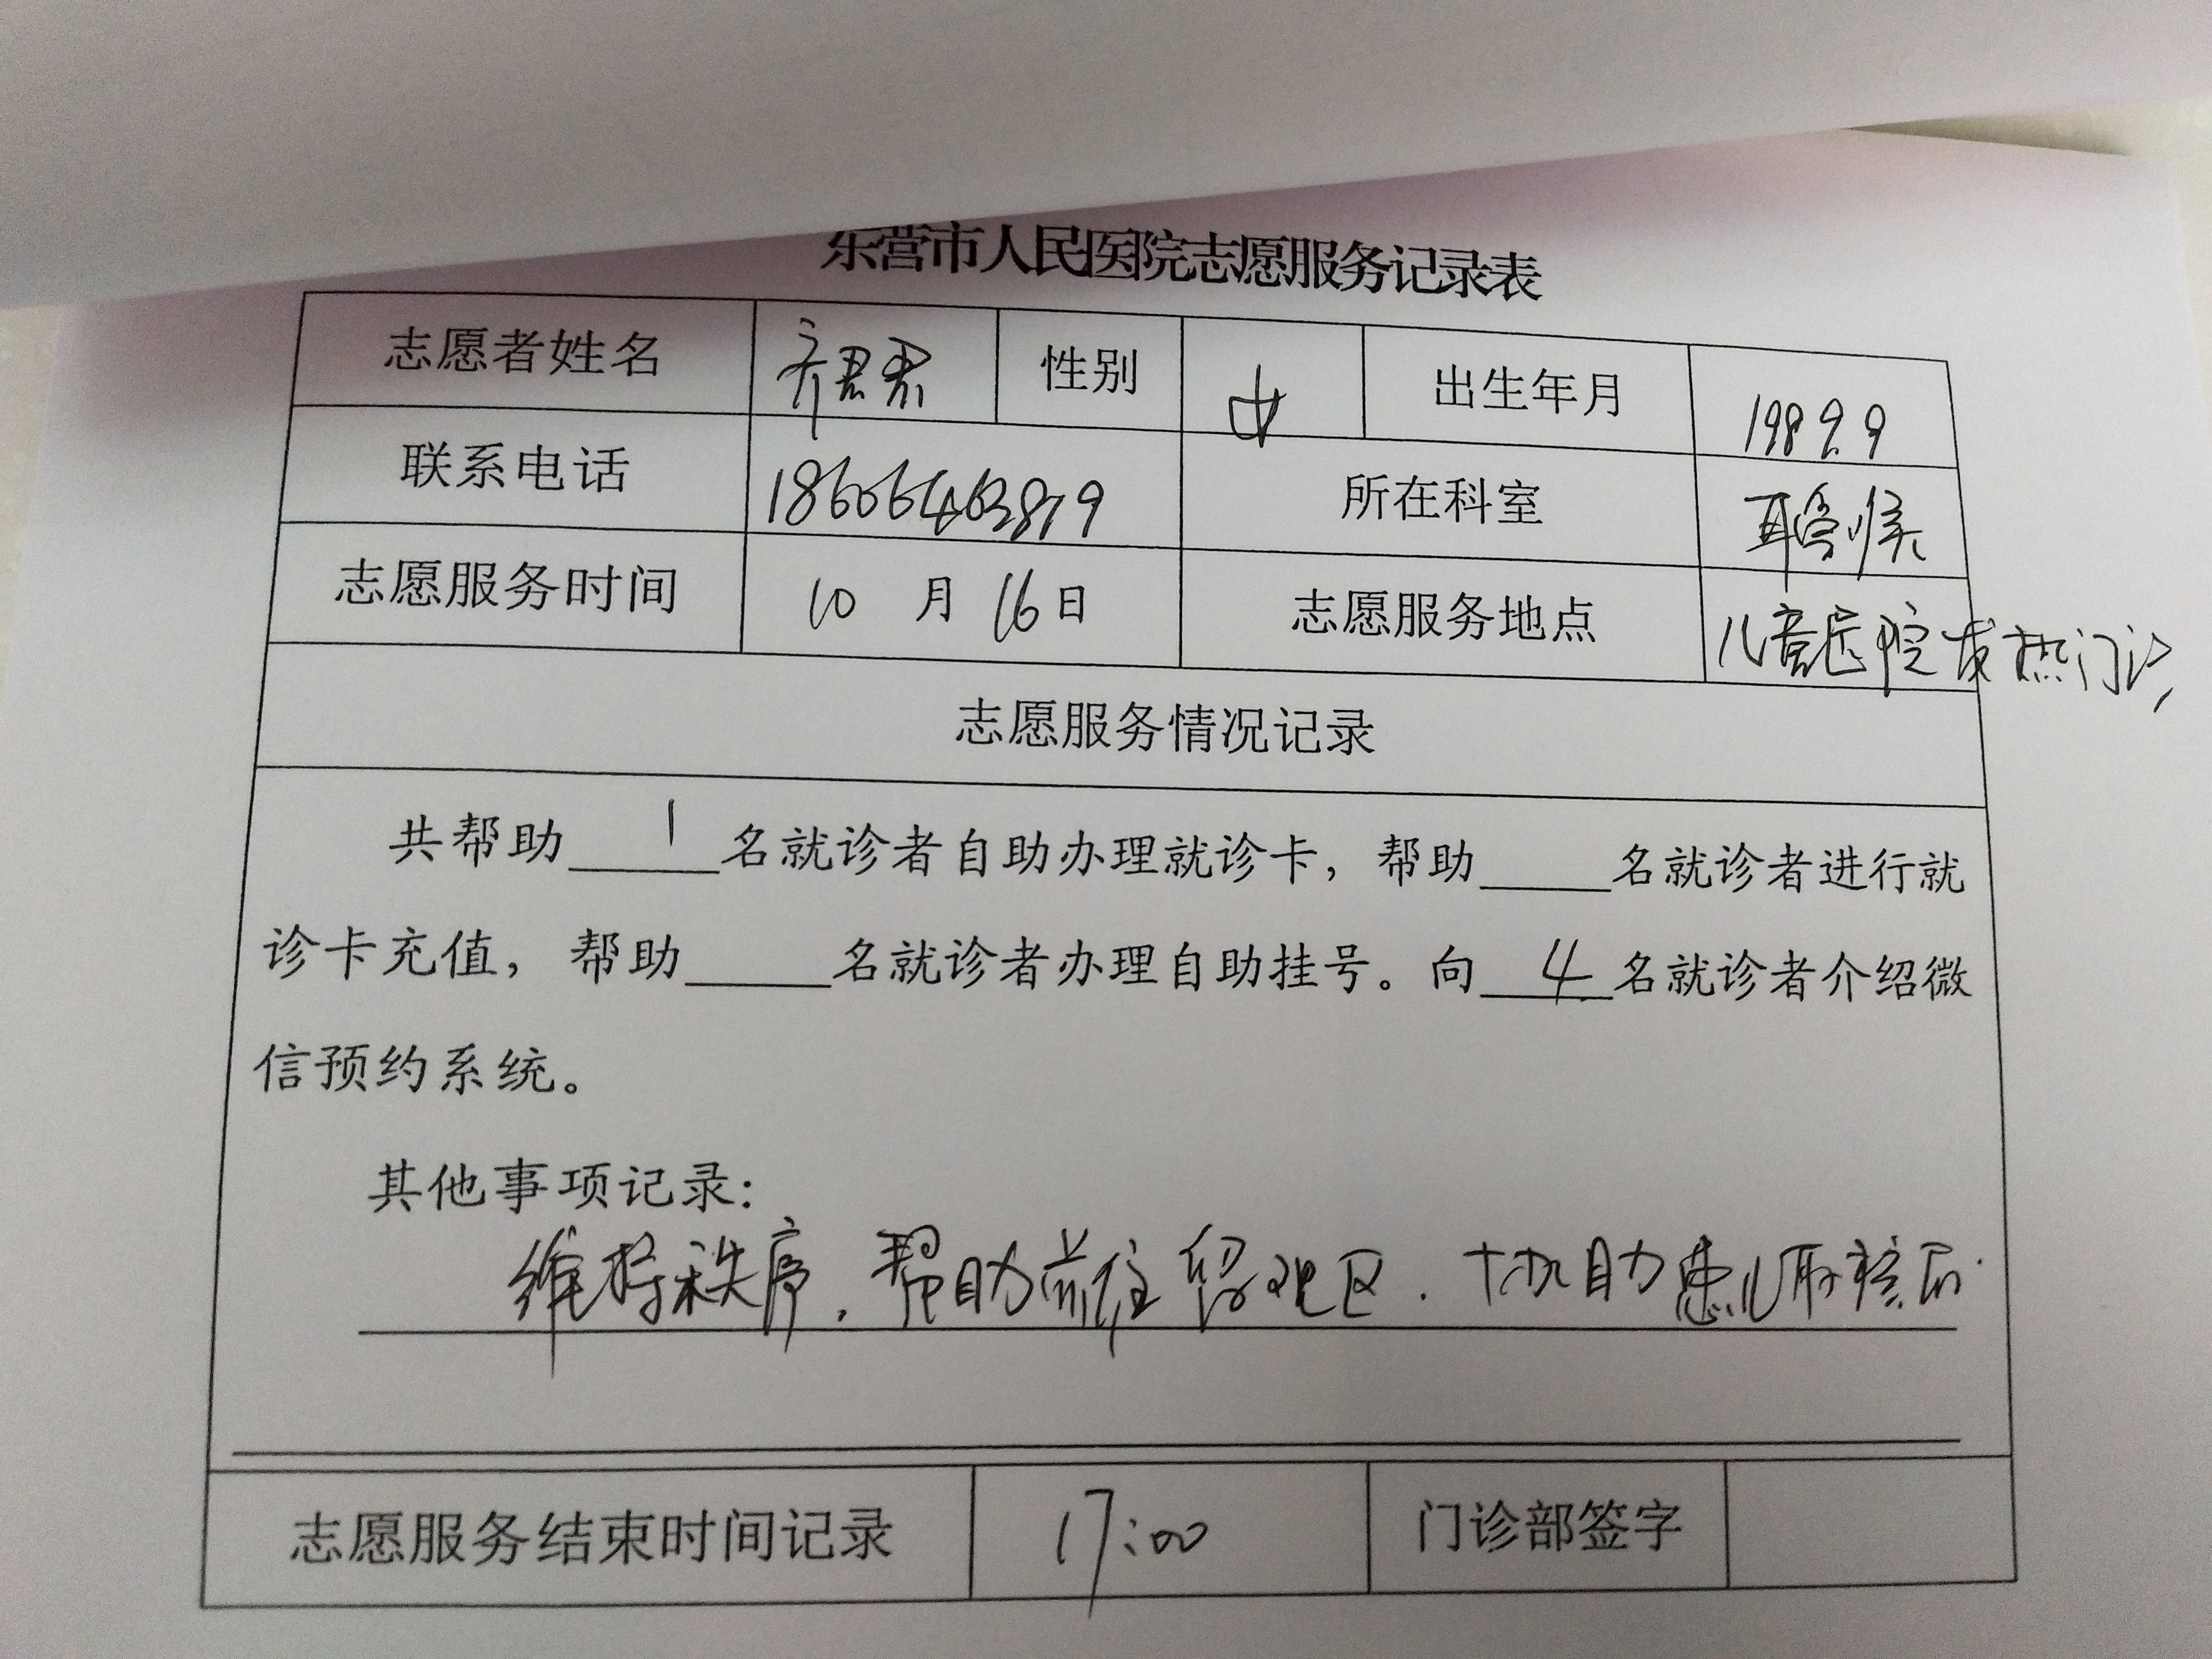 东营市人民医院志愿服务记录表
志愿者姓名 齐君君 性别 女 出生年月 1989.9
联系电话 所在科室 耳鼻喉
志愿服务时间 10 月 16 日 志愿服务地点 儿童医院发热门诊
志愿服务情况记录
共帮助 1 名就诊者自助办理就诊卡，帮助____名就诊者进行就
诊卡充值，帮助____名就诊者办理自助挂号。向 4 名就诊者介绍微
信预约系统。
其他事项记录：
维持秩序，帮助前往留观区，协助患儿取核酸
志愿服务结束时间记录 17:00 门诊部签字